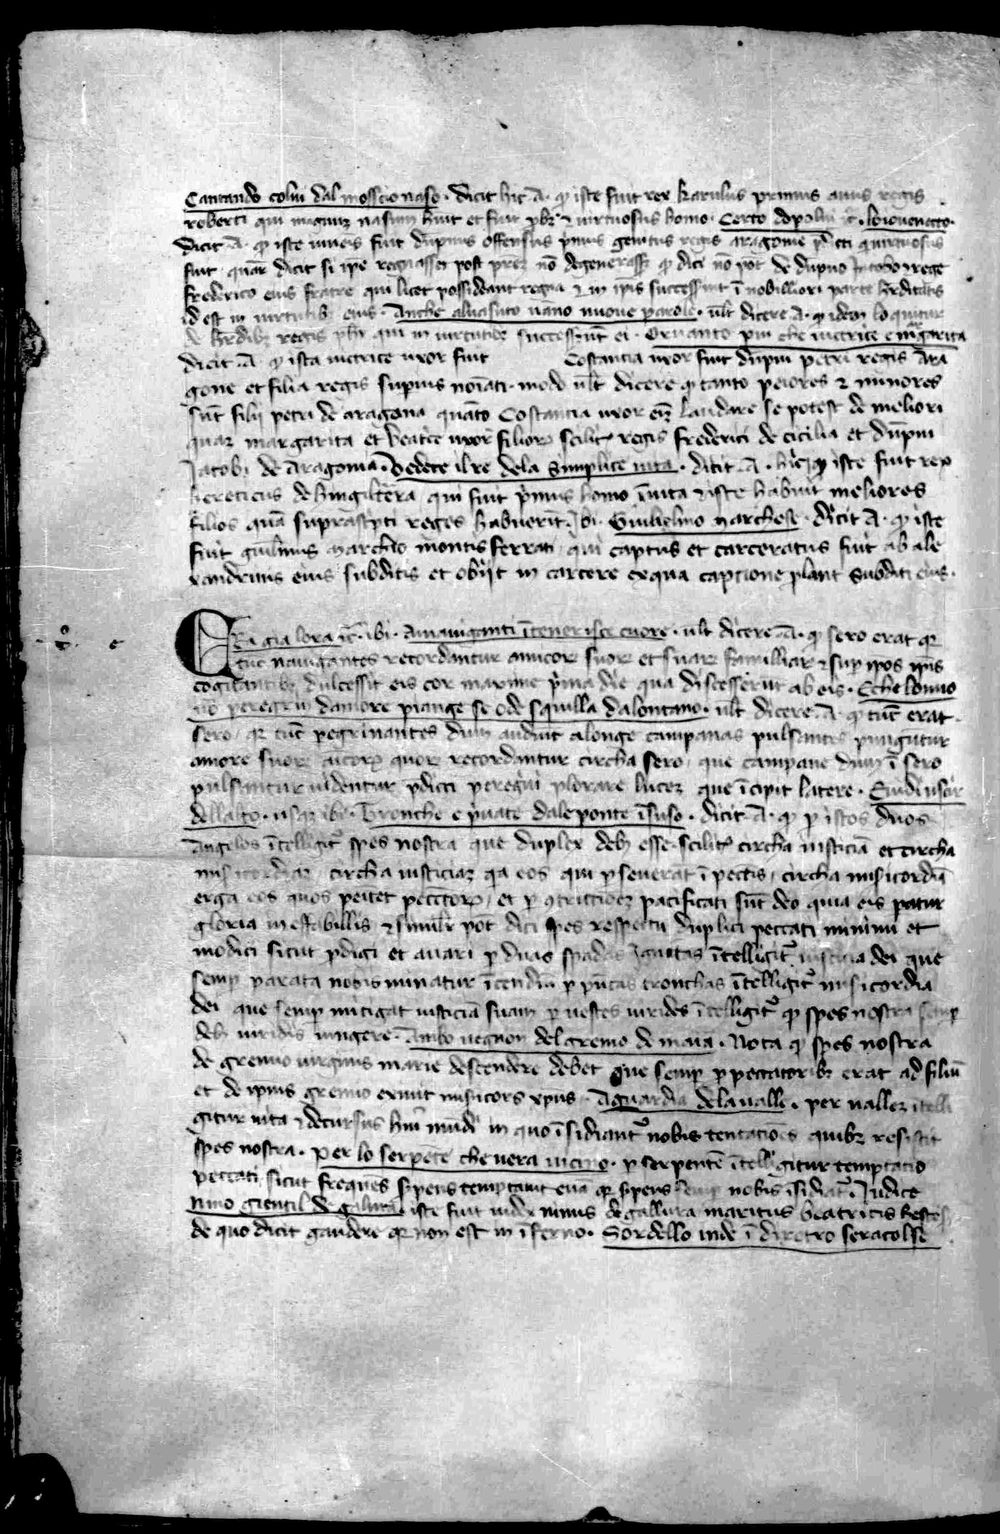 Cantando colui dal moscio naso · dicit hic A · qͥ iste fuit rex karulus primus avus regis
roberti qui magnuꝫ nasum huit et fuit pbꝰ ⁊ virtuosus homo · Certo dopo lui ic · lo iovenetto ·
dicit A · qͥ iste iuveis fuit dnpuus offensus pmus genitus regis aragonie pdcti qui virtuosus
fuit · quar dicit si ipe regnasset post prez nō degenerasse qͥ dici nō pōt de dnpuo Jacobo ⁊ rege
frederico eius fratre qui licet possideant regna ⁊ in ipis successerint ī nobilliori parte hrditatis
id est in virtutibꝫ eius · Anche alvasuto vāno nuove parole · ult dicere A · qͥ idem loquitur
de hrdibꝫ regis phi qui in virtutibꝫ successerunt ei · Qrvanto piu che victrice e mgarita
dicit A · qͥ ista victrice uxor fuit Costancia uxor fuit dnpui petri regis Ara
gone et filia regis supius noiati · modo ult dicere qͥ tanto peiores ⁊ minores
sunt filij petri de aragona quāto Costancia uxor eiꝫ laudare se potest de meliori
quaꝫ margarita et beatice uxor filioꝝ scilicꝫ regis frederici de cicilia et dnpui
Jacobi de Aragonia · Vedete il re dela simplice vita · dicit A · hic qͥ iste fuit rex
henricus de hingiltera qui fuit pmus homo ī vita ⁊ iste habuit meliores
filios quā suprascpti reges habuerīt · Ibi · Guilielmo marchese · dicit A · qͥ iste
fuit guilmus marchio montis ferrati qui captus et carceratus fuit ab ale
xandrinis eius subditis et obijt in carcere ex qua captione plant subditi eius ·
ERa gia lora ic · ibi · A naviganti ītenerisce cuore · ult dicere A · qͥ sero erat qꝛ
tūc navigantes recordantur amicoꝝ suoꝝ et suaꝝ familliaꝝ ⁊ sup ipos ipis
cogitantibꝫ dulcessit eis cor maxime pma die qua discesserūt ab eis · E che lo novo
peregrin damore piange se ode squilla da lontano · ult dicere A · qͥ tūc erat
sero qꝛ tūc pegrinantes dum audiūt a longe campanas pulsantes pungūtur
amore suoꝝ amicoꝝ quoꝝ recordantur circha sero que campane dum ī sero
pulsantur videntur pdicti peregini plorare lucez que īcipit latere · E vidi uscir
dellalto · usaꝫ ibi · Tronche e pivate dale ponte īsuso · dicit A · qͥ p istos duos
Angelos ītelligitꝛ spes nostra que duplex debꝫ esse scilicꝫ circha iusticiā et circha
misicordiaꝫ circha iusticiaꝫ qa eos qui pseverat ī pectis circha misicordiā
erga eos quos penitet pectoꝝ et p ꝯtrictioeꝫ pacificati sūt deo quia eis patur
gloria ineffabillis ⁊ similr pōt dici spes respectu duplici peccati minimi et
modici sicut pdigi et avari p duas spadas ignitas ītelligitꝛ iusticia dei que
semp parata nobis minatur īcendiū p pūctas tronchas ītelligitꝛ misicordia
dei que semp mitigat iusticiā suam p vestes virides ītelligitꝛ qͥ spes nostra semp
debꝫ viridis iungere · Ambo vegnon del gremo de maia · Nota qͥ spes nostra
de gremio virginis marie descendere debet que semp p peccatoribꝫ erat ad filiū
et de ipius gremio exivit misicors xpus · A guardia dela valle · per vallez ītelli
gitur vita ⁊ decursus hui mūdi in quo īsidiantꝛ nobis tentatiōes quibꝫ resistit
spes nostra · Per lo serpēte che vera vicino · p serpentē ītelligitur temptacio
peccati sicut freques serpens temptavit eva qꝛ serpens semp nobis īsidiatꝛ · Judice
nino gientil de galura iste fuit iudex ninus de gallura maritus beatricis hestes
de quo dicit gaudere qꝛ non est in īferno · Sordello inde ī diretro seracolse